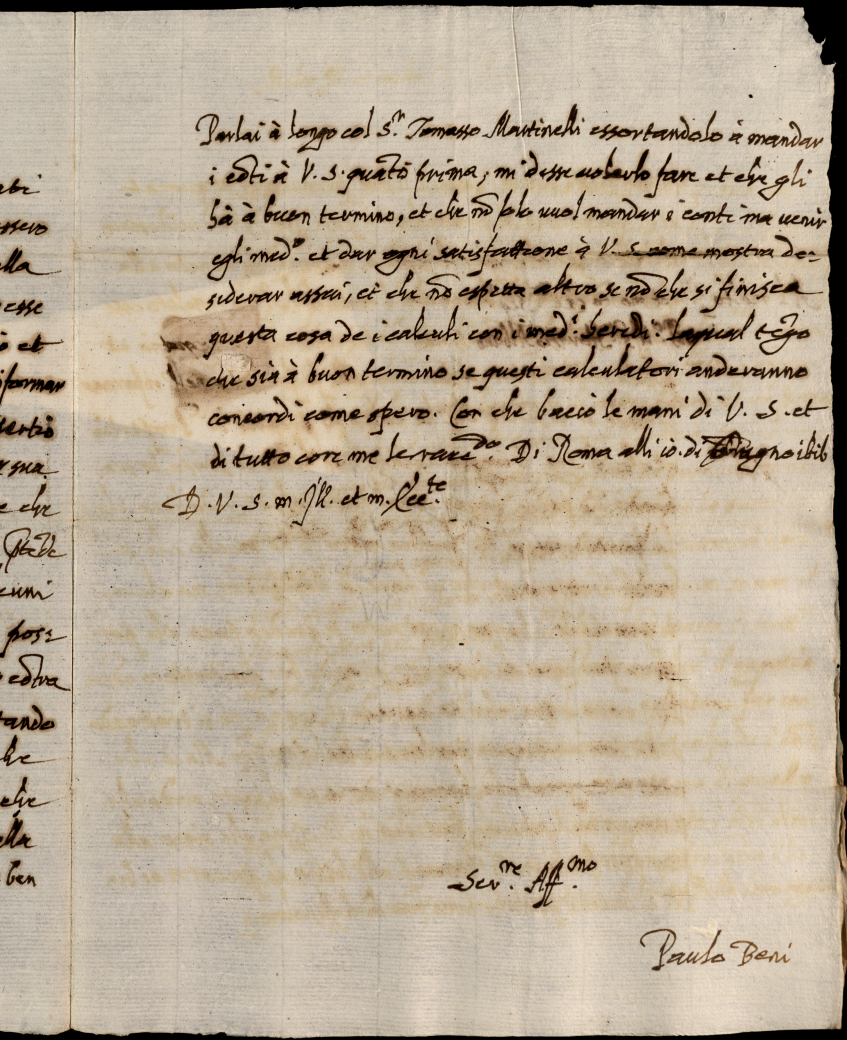 Parlai à longo col S.r Tomasso Martinelli essortandolo à mandar
i cōti à V. S. quāto prima, mi disse volerlo fare et che gli
hà à buon termino, et che nō solo vuol mandar i conti ma venir
egli med.o et dar ogni satisfattione à V. S. come mostra de=
siderar assai, et che nō espetta altro se nō che si finisca
questa cosa de i calculi con i med.i heredi. la qual tēgo
che sia à buon termino se questi calculatori anderanno
concordi come spero. Con che bacio le mani di V. S. et
di tutto core me le racc.do Di Roma alli 10. di Giugno 1616
D. V. S. m. Ill. et m. Ecc.te
Ser.re Aff.mo
Paulo Beni
ssero
ella
esse
o et
formar
sua
e che
pos=
cōtra
tando
che
che
ella
ben